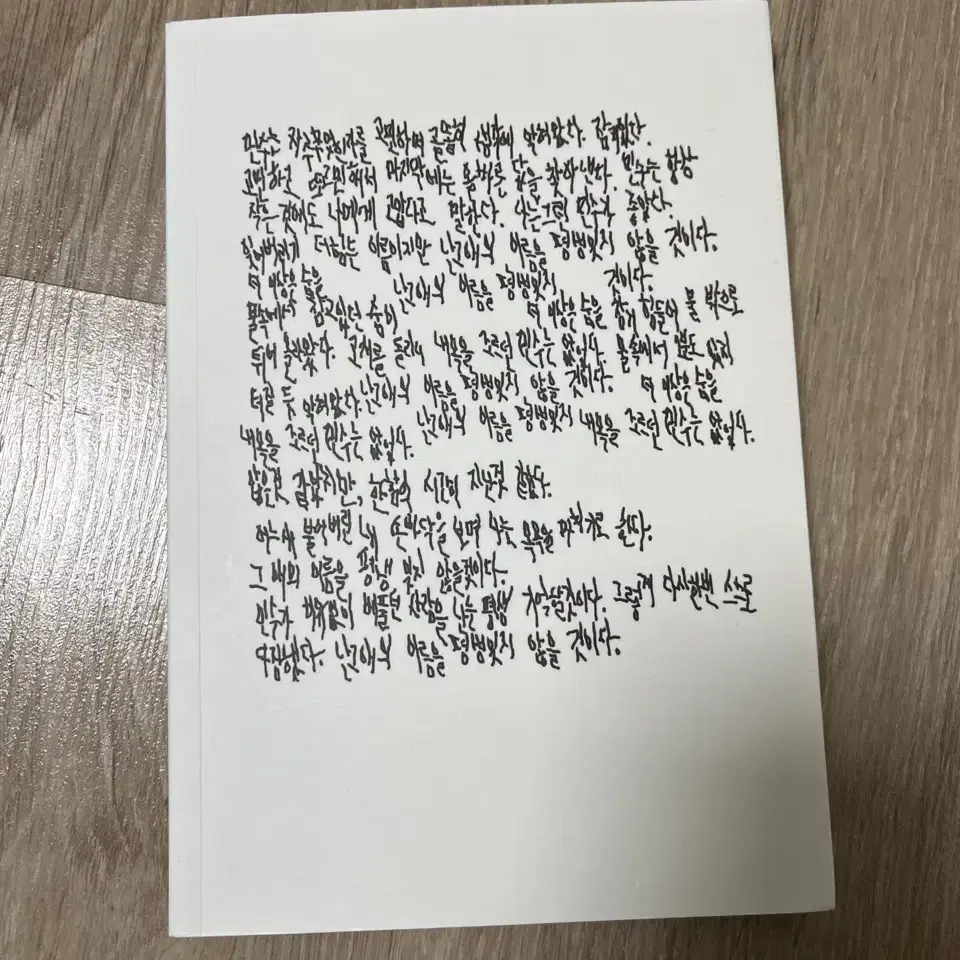 민수는 자주 무엇인가를 고민하며 골똘히 생각에 잠겨있었다. 잠겨있다.
고민하고 또 고민해서 마지막에는 올바른 답을 찾아낸다. 민수는 항상
작은 것에도 나에게 고맙다고 말한다. 나는 그런 민수가 좋았다.
잊어버렸게 더 힘든 이름이지만 난 그 애의 이름을 평생 잊지 않을 것이다.
더 이상은 숨을 난 그 애의 이름을 평생 잊지 것이다.
물속에서 참고 있던 숨이 더 이상은 숨을 참기 힘들어 물 밖으로
튀어 올라왔다. 고개를 돌리니 내 목을 조르던 민수는 없었다. 물속에서 분도 있지
터질 듯 난 그 애의 이름을 평생 잊지 않을 것이다. 더 이상은 숨을
내 목을 조르던 민수는 없었다. 난 그 애의 이름을 평생 잊지 내 목을 조르던 민수는 없었다.
짧은 것 같았지만, 한참의 시간이 지난것 같았다.
어느새 불어버린 내 손바닥을 보며 나는 목욕을 마치기로 한다.
그 애의 이름을 평생 잊지 않을것이다.
민수가 베풀던 사랑을 나는 평생 기억할것이다. 그렇게 다시한번 스스로
다짐했다. 난 그 애의 이름을 평생 잊지 않을 것이다.